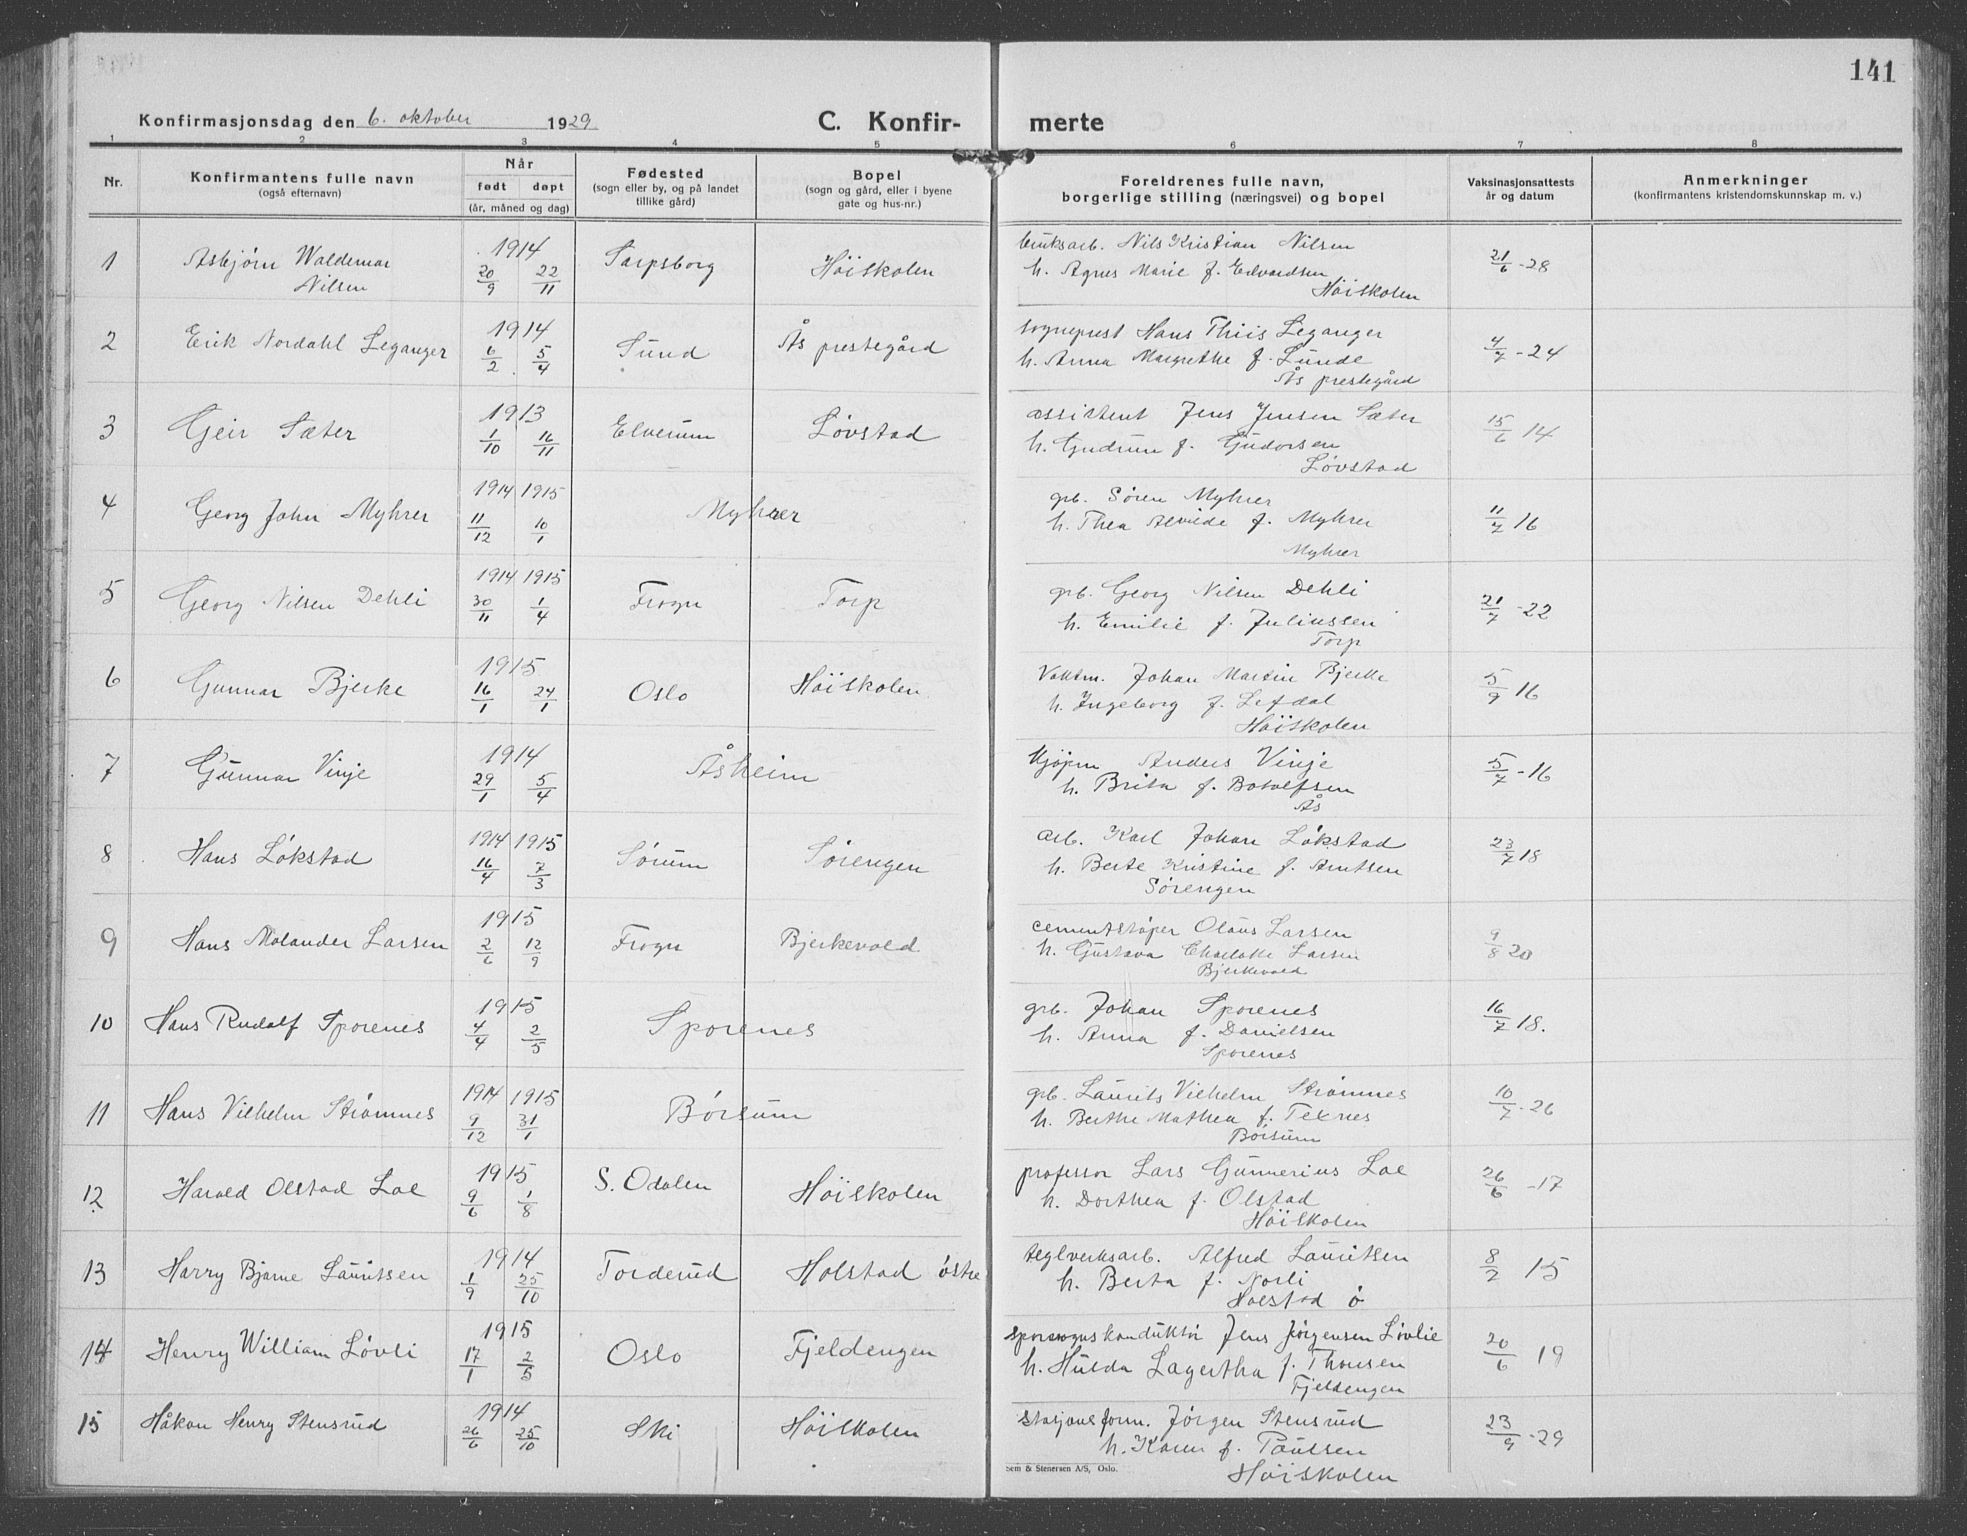 141
Konfirmasjonsdag den 6. oktober 1929 C. Konfir- merte
1 2 3 4 5 6 7 8
Nr. Konfirmantens fulle navn (også efternavn) Når født døpt (år, måned og dag) Fødested (sogn eller by, og på landet tillike gård) Bopel (sogn og gård, eller i byene gate og hus-nr.) Foreldrenes fulle navn, borgerlige stilling (næringsvei) og bopel Vaksinasjonsattests år og datum Anmerkninger (konfirmantens kristendomskunnskap m. v.)
1 Asbjørn Waldemar Nilsen 1914 20/9 22/11 Sarpsborg Höiskolen bruksarb. Nils Kristian Nilsen 21/6-28
h. Agnes Marie f. Edvardsen
Höiskolen
2 Erik Nordahl Leganger 1914 6/2 5/4 Sund Ås prestegård sogneprest Hans Thiis Leganger 4/7-24
h. Anna Margrethe f. Lunde
Ås prestegård
3 Geir Sæter 1913 1/10 16/11 Elverum Løvstad assistent Jens Jensen Sæter 15/6 14
h. Gudrun f. Gudorsen
Løvstad
4 Georg John Myhrer 1914 1915 11/12 10/1 Myhrer grb. Søren Myhrer 11/7 16
h. Thea Alvilde f. Myhrer
Myhrer
5 Georg Nilsen Dehli 1914 1915 30/11 1/4 Frogn Torp grb. Georg Nilsen Dehli 21/7-22
h. Emilie f. Juliussen
Torp
6 Gunnar Bjerke 1915 16/1 24/1 Oslo Höiskolen Vaktm. Johan Martin Bjerke 5/9 16
h. Ingeborg f. Lefdal
Höiskolen
7 Gunnar Vinje 1914 29/1 5/4 Åsheim kjøpm Anders Vinje 5/7-16
h. Brita f. Botolfsen
Ås
8 Hans Løkstad 1914 1915 16/4 7/3 Sørum Sørengen arb. Karl Johan Løkstad 23/7 18
h. Berte Kristine f. Arntsen
Sørengen
9 Hans Molander Larsen 1915 2/6 12/9 Frogn Bjerkevold cementstøper Olaus Larsen 9/8 20
h. Gustava Charlotte Larsen
Bjerkevold
10 Hans Rudolf Sporenes 1915 4/4 2/5 Sporenes grb. Johan Sporenes 16/7 18.
h. Anna f. Danielsen
Sporenes
11 Hans Vilhelm Strømnes 1914 1915 9/12 31/1 Børsum grb. Laurits Vilhelm Strømnes 10/7-26
h. Berthe Mathea f. Texnes
Børsum
12 Harald Olstad Loe 1915 9/6 1/8 S. Odalen Höiskolen professor Lars Gunnerius Loe 26/6-17
h. Dorthea f. Olstad
Höiskolen
13 Harry Bjarne Lauritsen 1914 1/9 25/10 Torderud Holstad østre teglverksarb. Alfred Lauritsen 8/2 15
h. Berta f. Norli
Holstad ø
14 Henry William Løvli 1915 17/1 2/5 Oslo Fjeldengen sporvognskonduktør Jens Jørgensen Løvlie 20/6 19
h. Hulda Lagertha f. Thonsen
Fjeldengen
15 Håkon Henry Stensrud 1914 26/6 25/10 Ski Höiskolen stasjonsform. Jørgen Stensrud 23/9-29
h. Karen f. Paulsen
Höiskolen
Sem & Stenersen A/S, Oslo.